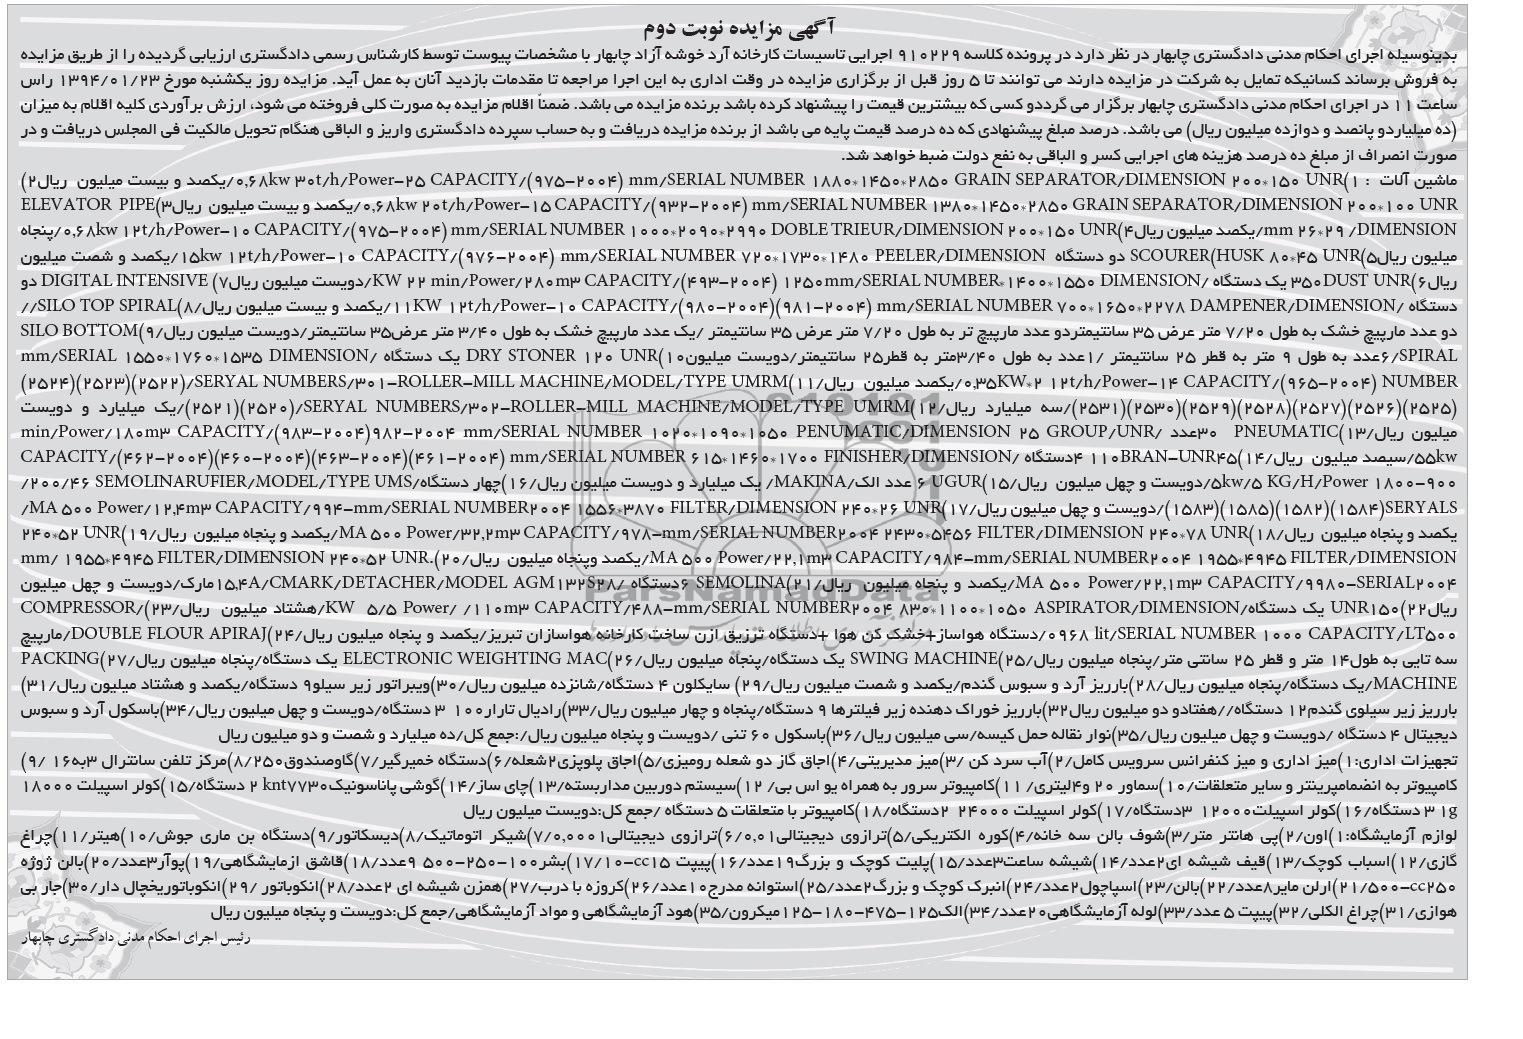 آگهی مزایده نوبت دوم
بدینوسیله اجرای احکام مدنی دادگستری چابهار در نظر دارد در پرونده کلاسه ۹۱۰۲۲۹ اجرایی تاسیسات کارخانه آرد خوشه آزاد چابهار با مشخصات پیوست توسط کارشناس رسمی دادگستری ارزیابی گردیده را از طریق مزایده
به فروش برساند کسانیکه تمایل به شرکت در مزایده دارند می توانند تا ۵ روز قبل از برگزاری مزایده در وقت اداری به این اجرا مراجعه تا مقدمات بازدید آنان به عمل آید. مزایده روز یکشنبه مورخ ۱۳۹۴/۰۱/۲۳ راس
ساعت ۱۱ در اجرای احکام مدنی دادگستری چابهار برگزار می گرددو کسی که بیشترین قیمت را پیشنهاد کرده باشد برنده مزایده می باشد. ضمناً اقلام مزایده به صورت کلی فروخته می شود، ارزش برآوردی کلیه اقلام به میزان
(ده میلیاردو پانصد و دوازده میلیون ریال) می باشد. درصد مبلغ پیشنهادی که ده درصد قیمت پایه می باشد از برنده مزایده دریافت و به حساب سپرده دادگستری واریز و الباقی هنگام تحویل مالکیت فی المجلس دریافت و در
صورت انصراف از مبلغ ده درصد هزینه های اجرایی کسر و الباقی به نفع دولت ضبط خواهد شد.
ماشین آلات : ۱)GRAIN SEPARATOR/DIMENSION ۲۰۰*۱۵۰ UNR ۲۸۵۰*۱۴۵۰*۱۸۸۰ mm/SERIAL NUMBER (۲۰۰۴-۹۷۵)/CAPACITY ۲۵-۳۰t/h/Power ۰,۶۸kw/یکصد و بیست میلیون ریال۲)
GRAIN SEPARATOR/DIMENSION ۲۰۰*۱۰۰ UNR ۲۸۵۰*۱۴۵۰*۱۳۸۰ mm/SERIAL NUMBER (۲۰۰۴-۹۳۲)/CAPACITY ۱۵-۲۰t/h/Power ۰,۶۸kw/یکصد و بیست میلیون ریال۳)ELEVATOR PIPE
DIMENSION/ ۲۹*۲۶ mm/یکصد میلیون ریال۴)DOBLE TRIEUR/DIMENSION ۲۰۰*۱۵۰ UNR ۲۹۹۰*۲۰۹۰*۱۰۰۰ mm/SERIAL NUMBER (۲۰۰۴-۹۷۵)/CAPACITY ۱۰-۱۲t/h/Power ۰,۶۸kw/پنجاه
میلیون ریال۵)SCOURER(HUSK ۸۰*۴۵ UNR دو دستگاه PEELER/DIMENSION ۱۴۸۰*۱۷۳۰*۷۲۰ mm/SERIAL NUMBER (۲۰۰۴-۹۷۶)/CAPACITY ۱۰-۱۲t/h/Power ۱۵kw/یکصد و شصت میلیون
ریال۶)DUST UNR۳۵۰ یک دستگاه /DIMENSION ۱۵۵۰*۱۴۰۰*۱۲۵۰mm/SERIAL NUMBER (۲۰۰۴-۴۹۳)/CAPACITY ۲۸۰m۳/min/Power ۲۲ KW/دویست میلیون ریال۷) DIGITAL INTENSIVE دو
دستگاه /DAMPENER/DIMENSION ۲۲۷۸*۱۶۵۰*۷۰۰ mm/SERIAL NUMBER (۲۰۰۴-۹۸۱)(۲۰۰۴-۹۸۰)/CAPACITY ۱۰-۱۲t/h/Power ۱۱KW/یکصد و بیست میلیون ریال/۸)SILO TOP SPIRAL//
دو عدد مارپیچ خشک به طول ۷/۲۰ متر عرض ۳۵ سانتیمتردو عدد مارپیچ تر به طول ۷/۲۰ متر عرض ۳۵ سانتیمتر /یک عدد مارپیچ خشک به طول ۳/۴۰ متر عرض۳۵ سانتیمتر/دویست میلیون ریال/۹)SILO BOTTOM
SPIRAL/۶عدد به طول ۹ متر به قطر ۲۵ سانتیمتر /۱عدد به طول ۳/۴۰متر به قطر۲۵ سانتیمتر/دویست میلیون۱۰)DRY STONER ۱۲۰ UNR یک دستگاه /DIMENSION ۱۵۳۵*۱۷۶۰*۱۵۵۰ mm/SERIAL
NUMBER (۲۰۰۴-۹۶۵)/CAPACITY ۱۴-۱۲t/h/Power ۲*۰,۳۵KW/یکصد میلیون ریال/۱۱)ROLLER-MILL MACHINE/MODEL/TYPE UMRM-۳۰۱/SERYAL NUMBERS/(۲۵۲۲)(۲۵۲۳)(۲۵۲۴)
(۲۵۲۵)(۲۵۲۶)(۲۵۲۷)(۲۵۲۸)(۲۵۲۹)(۲۵۳۰)(۲۵۳۱)/سه میلیارد ریال/۱۲)ROLLER-MILL MACHINE/MODEL/TYPE UMRM-۳۰۲/SERYAL NUMBERS/(۲۵۲۰)(۲۵۲۱)/یک میلیارد و دویست
میلیون ریال/۱۳)PNEUMATIC ۳۰عدد /PENUMATIC/DIMENSION ۲۵ GROUP/UNR ۱۰۵۰*۱۰۹۰*۱۰۲۰ mm/SERIAL NUMBER ۲۰۰۴-۹۸۲(۲۰۰۴-۹۸۳)/CAPACITY ۱۸۰m۳/min/Power
۵۵kw/سیصد میلیون ریال/۱۴)۱۱۰BRAN-UNR۴۵ ۴دستگاه /FINISHER/DIMENSION ۱۷۰۰*۱۴۶۰*۶۱۵ mm/SERIAL NUMBER (۲۰۰۴-۴۶۱)(۲۰۰۴-۴۶۳)(۲۰۰۴-۴۶۰)(۲۰۰۴-۴۶۲)/CAPACITY
۹۰۰-۱۸۰۰ KG/H/Power ۵/۵kw/دویست و چهل میلیون ریال/۱۵)UGUR ۶ عدد الک/MAKINA/ یک میلیارد و دویست میلیون ریال/۱۶)چهار دستگاه/SEMOLINARUFIER/MODEL/TYPE UMS ۲۰۰/۴۶/
SERYALS(۱۵۸۴)(۱۵۸۲)(۱۵۸۵)(۱۵۸۳)/دویست و چهل میلیون ریال/۱۷)FILTER/DIMENSION ۲۴۰*۲۶ UNR ۳۸۷۰*۱۵۵۶ mm/SERIAL NUMBER۲۰۰۴-۹۹۴/CAPACITY ۱۲,۴m۳/Power ۵۰۰ MA/
یکصد و پنجاه میلیون ریال/۱۸)FILTER/DIMENSION ۲۴۰*۷۸ UNR ۵۴۵۶*۲۴۳۰ mm/SERIAL NUMBER۲۰۰۴-۹۷۸/CAPACITY ۳۲,۲m۳/Power ۵۰۰ MA/یکصد و پنجاه میلیون ریال/۱۹)۲۴۰*۵۲ UNR
FILTER/DIMENSION ۴۹۴۵*۱۹۵۵ mm/SERIAL NUMBER۲۰۰۴-۹۸۴/CAPACITY ۲۲,۱m۳/Power ۵۰۰ MA/یکصد وپنجاه میلیون ریال/۲۰).FILTER/DIMENSION ۲۴۰*۵۲ UNR ۴۹۴۵*۱۹۵۵ mm/
SERIAL۲۰۰۴-۹۹۸۰/CAPACITY ۲۲,۱m۳/Power ۵۰۰ MA/یکصد و پنجاه میلیون ریال/۲۱)SEMOLINA ۶دستگاه /CMARK/DETACHER/MODEL AGM۱۳۲S۲۸/۱۵,۴Aمارک/دویست و چهل میلیون
ریال۲۲)UNR۱۵۰ یک دستگاه/ASPIRATOR/DIMENSION ۱۰۵۰*۱۱۰۰*۸۳۰ mm/SERIAL NUMBER۲۰۰۴-۴۸۸/CAPACITY ۱۱۰m۳/ /Power ۵/۵ KW/هشتاد میلیون ریال/۲۳)COMPRESSOR/
LT۵۰۰/CAPACITY ۱۰۰۰ lit/SERIAL NUMBER ۰۹۶۸/دستگاه هواساز+خشک کن هوا +دستگاه تزریق ازن ساخت کارخانه هواسازان تبریز/یکصد و پنجاه میلیون ریال/۲۴)DOUBLE FLOUR APIRAJ/مارپیچ
سه تایی به طول۱۴ متر و قطر ۲۵ سانتی متر/پنجاه میلیون ریال/۲۵)SWING MACHINE یک دستگاه/پنجاه میلیون ریال/۲۶)ELECTRONIC WEIGHTING MAC یک دستگاه/پنجاه میلیون ریال/۲۷)PACKING
MACHINE/یک دستگاه/پنجاه میلیون ریال/۲۸)بارریز آرد و سبوس گندم/یکصد و شصت میلیون ریال/۲۹) سایکلون ۴ دستگاه/شانزده میلیون ریال/۳۰)ویبراتور زیر سیلو۹ دستگاه/یکصد و هشتاد میلیون ریال/۳۱)
بارریز زیر سیلوی گندم۱۲ دستگاه//هفتادو دو میلیون ریال۳۲)بارریز خوراک دهنده زیر فیلترها ۹ دستگاه/پنجاه و چهار میلیون ریال/۳۳)رادیال تارار۱۰۰ ۳ دستگاه/دویست و چهل میلیون ریال/۳۴)باسکول آرد و سبوس
دیجیتال ۴ دستگاه /دویست و چهل میلیون ریال/۳۵)نوار نقاله حمل کیسه/سی میلیون ریال/۳۶)باسکول ۶۰ تنی /دویست و پنجاه میلیون ریال/:جمع کل/ده میلیارد و شصت و دو میلیون ریال
تجهیزات اداری:۱)میز اداری و میز کنفرانس سرویس کامل/۲)آب سرد کن /۳)میز مدیریتی/۴)اجاق گاز دو شعله رومیزی/۵)اجاق پلوپزی۲شعله/۶)دستگاه خمیرگیر/۷)گاوصندوق۸/۲۵۰)مرکز تلفن سانترال ۳به۱۶ /۹)
کامپیوتر به انضمامپرینتر و سایر متعلقات/۱۰)سماور ۲۰ و۴لیتری/ ۱۱)کامپیوتر سرور به همراه یو اس بی/ ۱۲)سیستم دوربین مداربسته/۱۳)چای ساز/۱۴)گوشی پاناسونیک۲ knt۷۷۳۰ دستگاه/۱۵)کولر اسپیلت ۱۸۰۰۰
۱g ۳ دستگاه/۱۶)کولر اسپیلت۱۲۰۰۰ ۳دستگاه/۱۷)کولر اسپیلت ۲۴۰۰۰ ۲دستگاه/۱۸)کامپیوتر با متعلقات ۵ دستگاه /جمع کل:دویست میلیون ریال
لوازم آزمایشگاه:۱)اون/۲)پی هانتر متر/۳)شوف بالن سه خانه/۴)کوره الکتریکی/۵)ترازوی دیجیتالی۶/۰,۰۱)ترازوی دیجیتالی۷/۰,۰۰۰۱)شیکر اتوماتیک/۸)دیسکاتور/۹)دستگاه بن ماری جوش/۱۰)هیتر/۱۱)چراغ
گازی/۱۲)اسباب کوچک/۱۳)قیف شیشه ای۲عدد/۱۴)شیشه ساعت۳عدد/۱۵)پلیت کوچک و بزرگ۱۹عدد/۱۶)پیپت ۱۵cc-۱۷/۱۰)بشر۱۰۰-۲۵۰-۵۰۰ ۹عدد/۱۸)قاشق ازمایشگاهی/۱۹)پوآر۳عدد/۲۰)بالن ژوژه
۲۵۰cc-۲۱/۵۰۰)ارلن مایر۸عدد/۲۲)بالن/۲۳)اسپاچول۲عدد/۲۴)انبرک کوچک و بزرگ۲عدد/۲۵)استوانه مدرج۱۰عدد/۲۶)کروزه با درب/۲۷)همزن شیشه ای ۲عدد/۲۸)انکوباتور /۲۹)انکوباتوریخچال دار/۳۰)جار بی
هوازی/۳۱)چراغ الکلی/۳۲)پیپت ۵ عدد/۳۳)لوله آزمایشگاهی۲۰عدد/۳۴)الک۱۲۵-۴۷۵-۱۸۰-۱۲۵میکرون/۳۵)هود آزمایشگاهی و مواد آزمایشگاهی/جمع کل:دویست و پنجاه میلیون ریال
رئیس اجرای احکام مدنی دادگستری چابهار
ParsNamadData